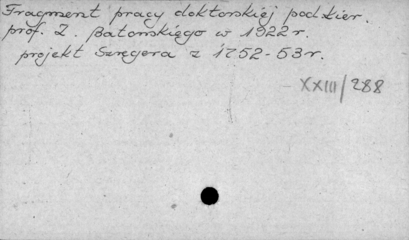 Fragment pracy doktorskiej pod kier.
prof. Z. Batowskiego w 1922 r.
projekt Szregera z 1752-53 r.
XXIII/288